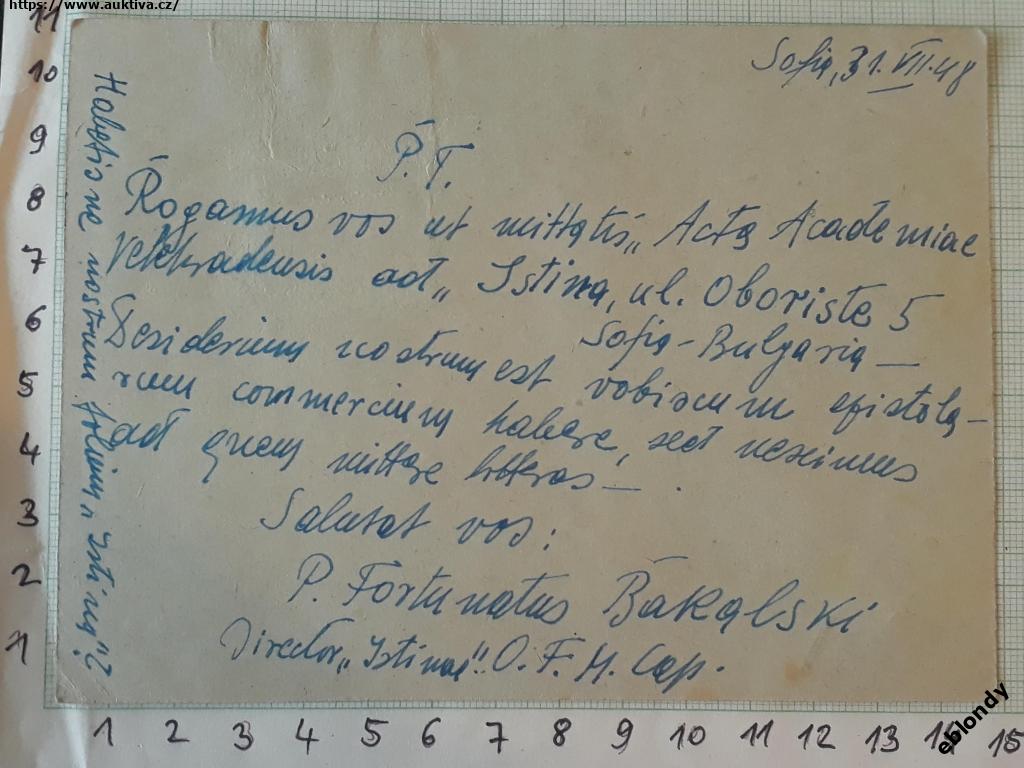 https://www.auktiva.cz/
Sofia, 31. VII. 48
P. T.
Rogamus vos ut mittatis „ Acta Academiae
Velehradensis ad „ Istina, ul. Oboriste 5
Sofia - Bulgaria —
Desiderium nostrum est vobiscum epistola-
rum commercium habere, sed nescimus
ad quem mittere litteras — .
Salutat vos :
P. Fortunatus Bakalski
Director „Istinae" O. F. M. Cap.
Habetis ne nostrum folium „ Istina"?
11
10
9
8
7
6
5
4
3
2
1
1 2 3 4 5 6 7 8 9 10 11 12 13 14 15
eblondy